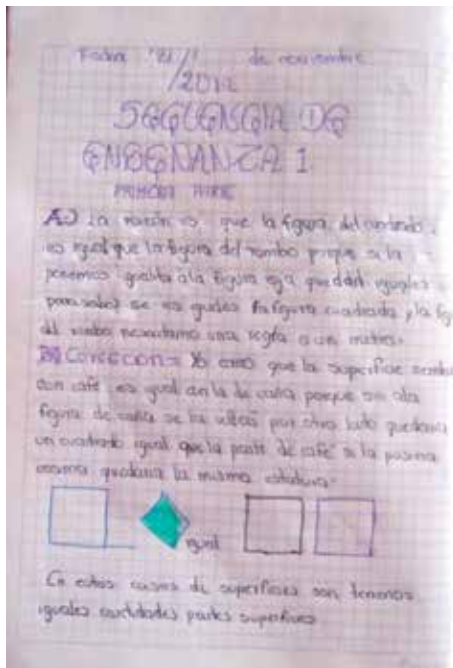 Fecha 21/ de noviembre
/2012
SECUENCIA DE
ENSEÑANZA 1
PRIMERA PARTE
A) La razón es que la figura del cuadrado
es igual que la figura del rombo porque si la
ponemos la figura quedan iguales
para saber si es la figura cuadrada y la fig
del rombo necesitamos una regla o un metro.
B) Correccion= Yo creo que la superficie
con café es igual con la de caña porque si ala
figura de caña se la por otro lado quedaria
un cuadrado igual que la parte de café si la
quedaria la misma
igual
En estos casos de superficies son tenemos
iguales cantidades partes superficies